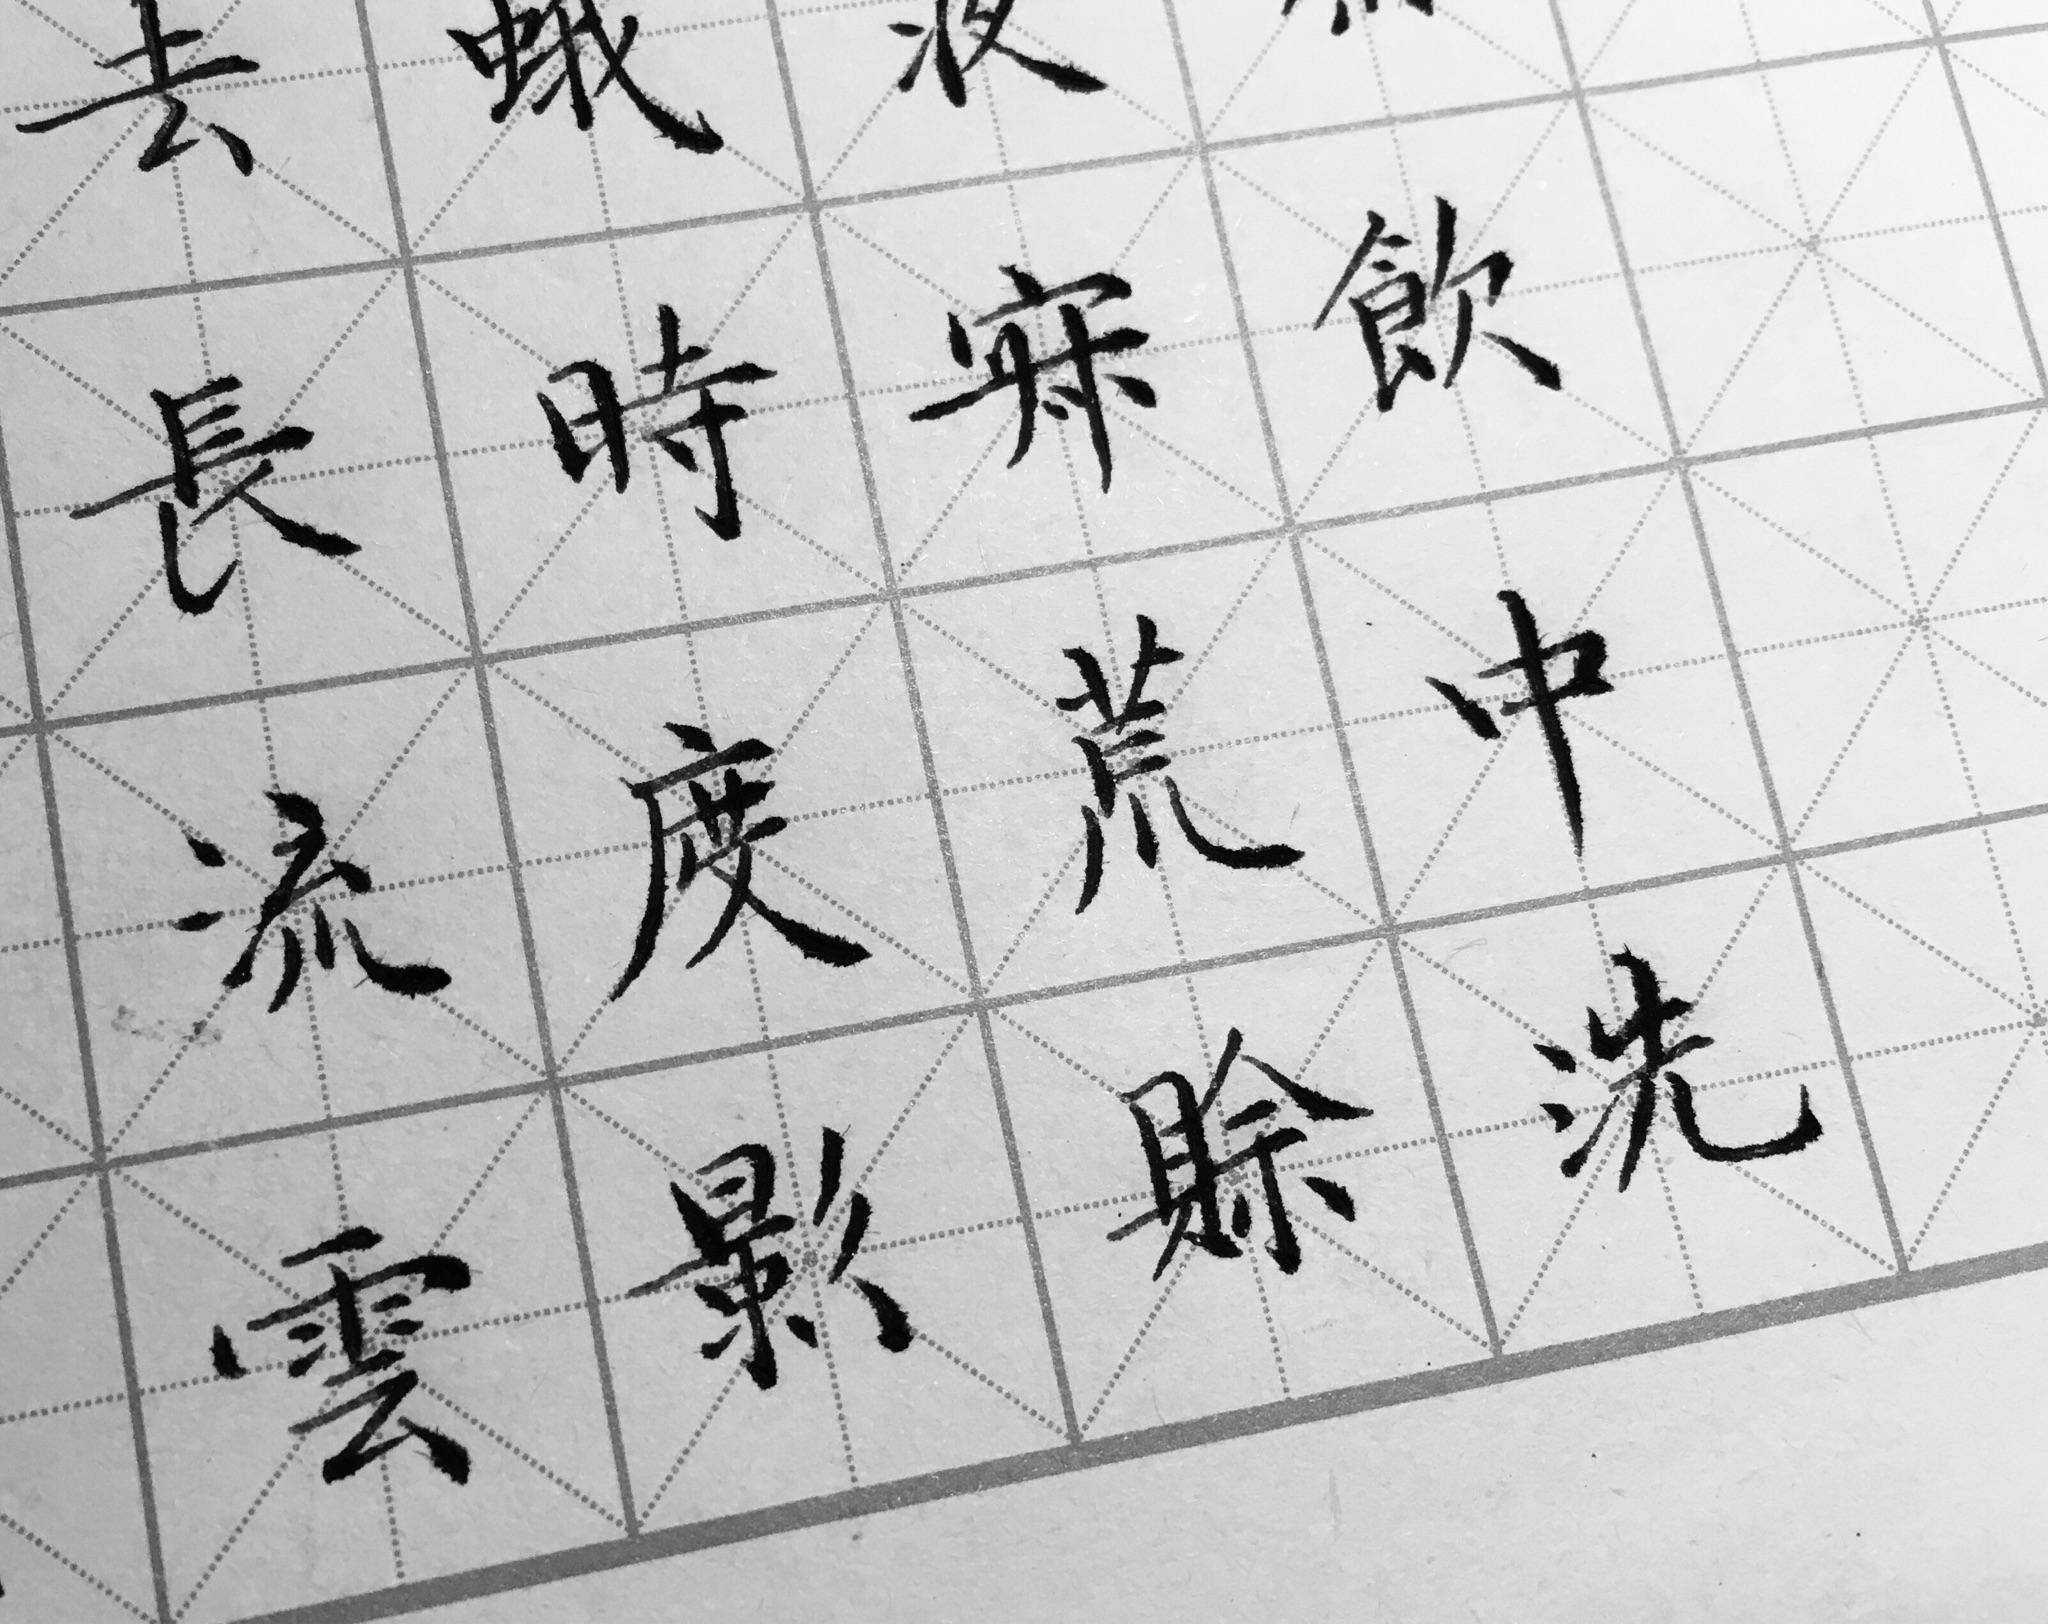 飲中洗
荒賒
蛾時度影
去長流雲